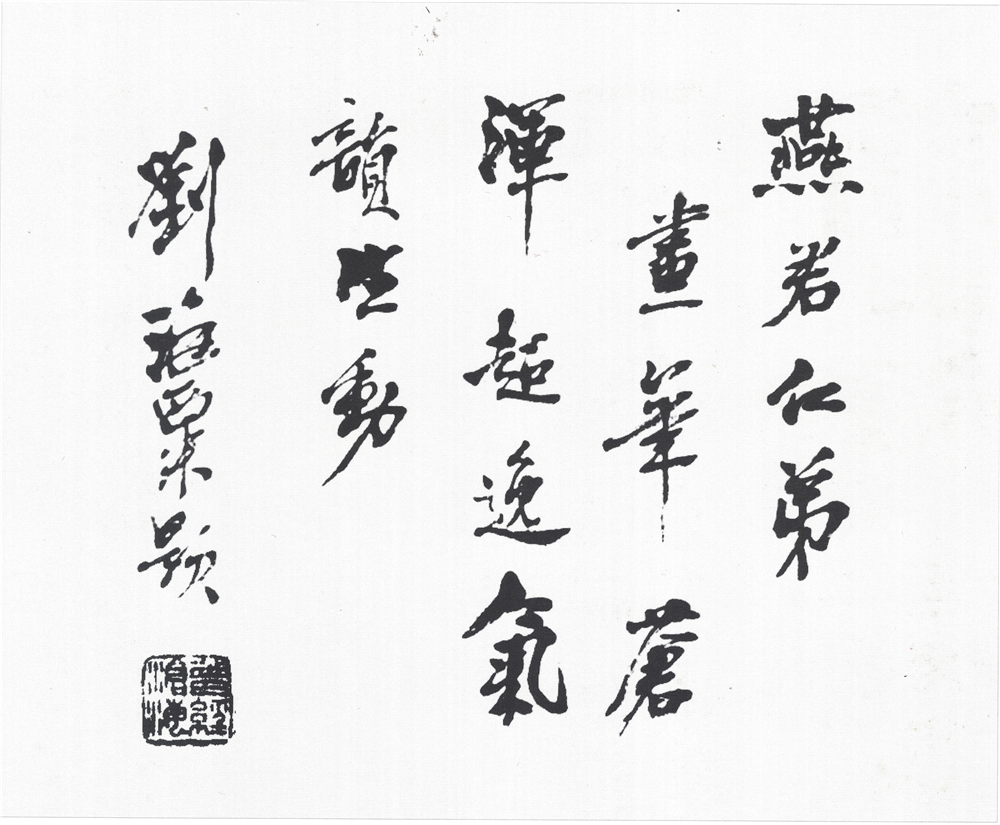 燕君仁弟
畫筆蒼
渾超逸氣
韻生動
劉海粟題
曾經滄海